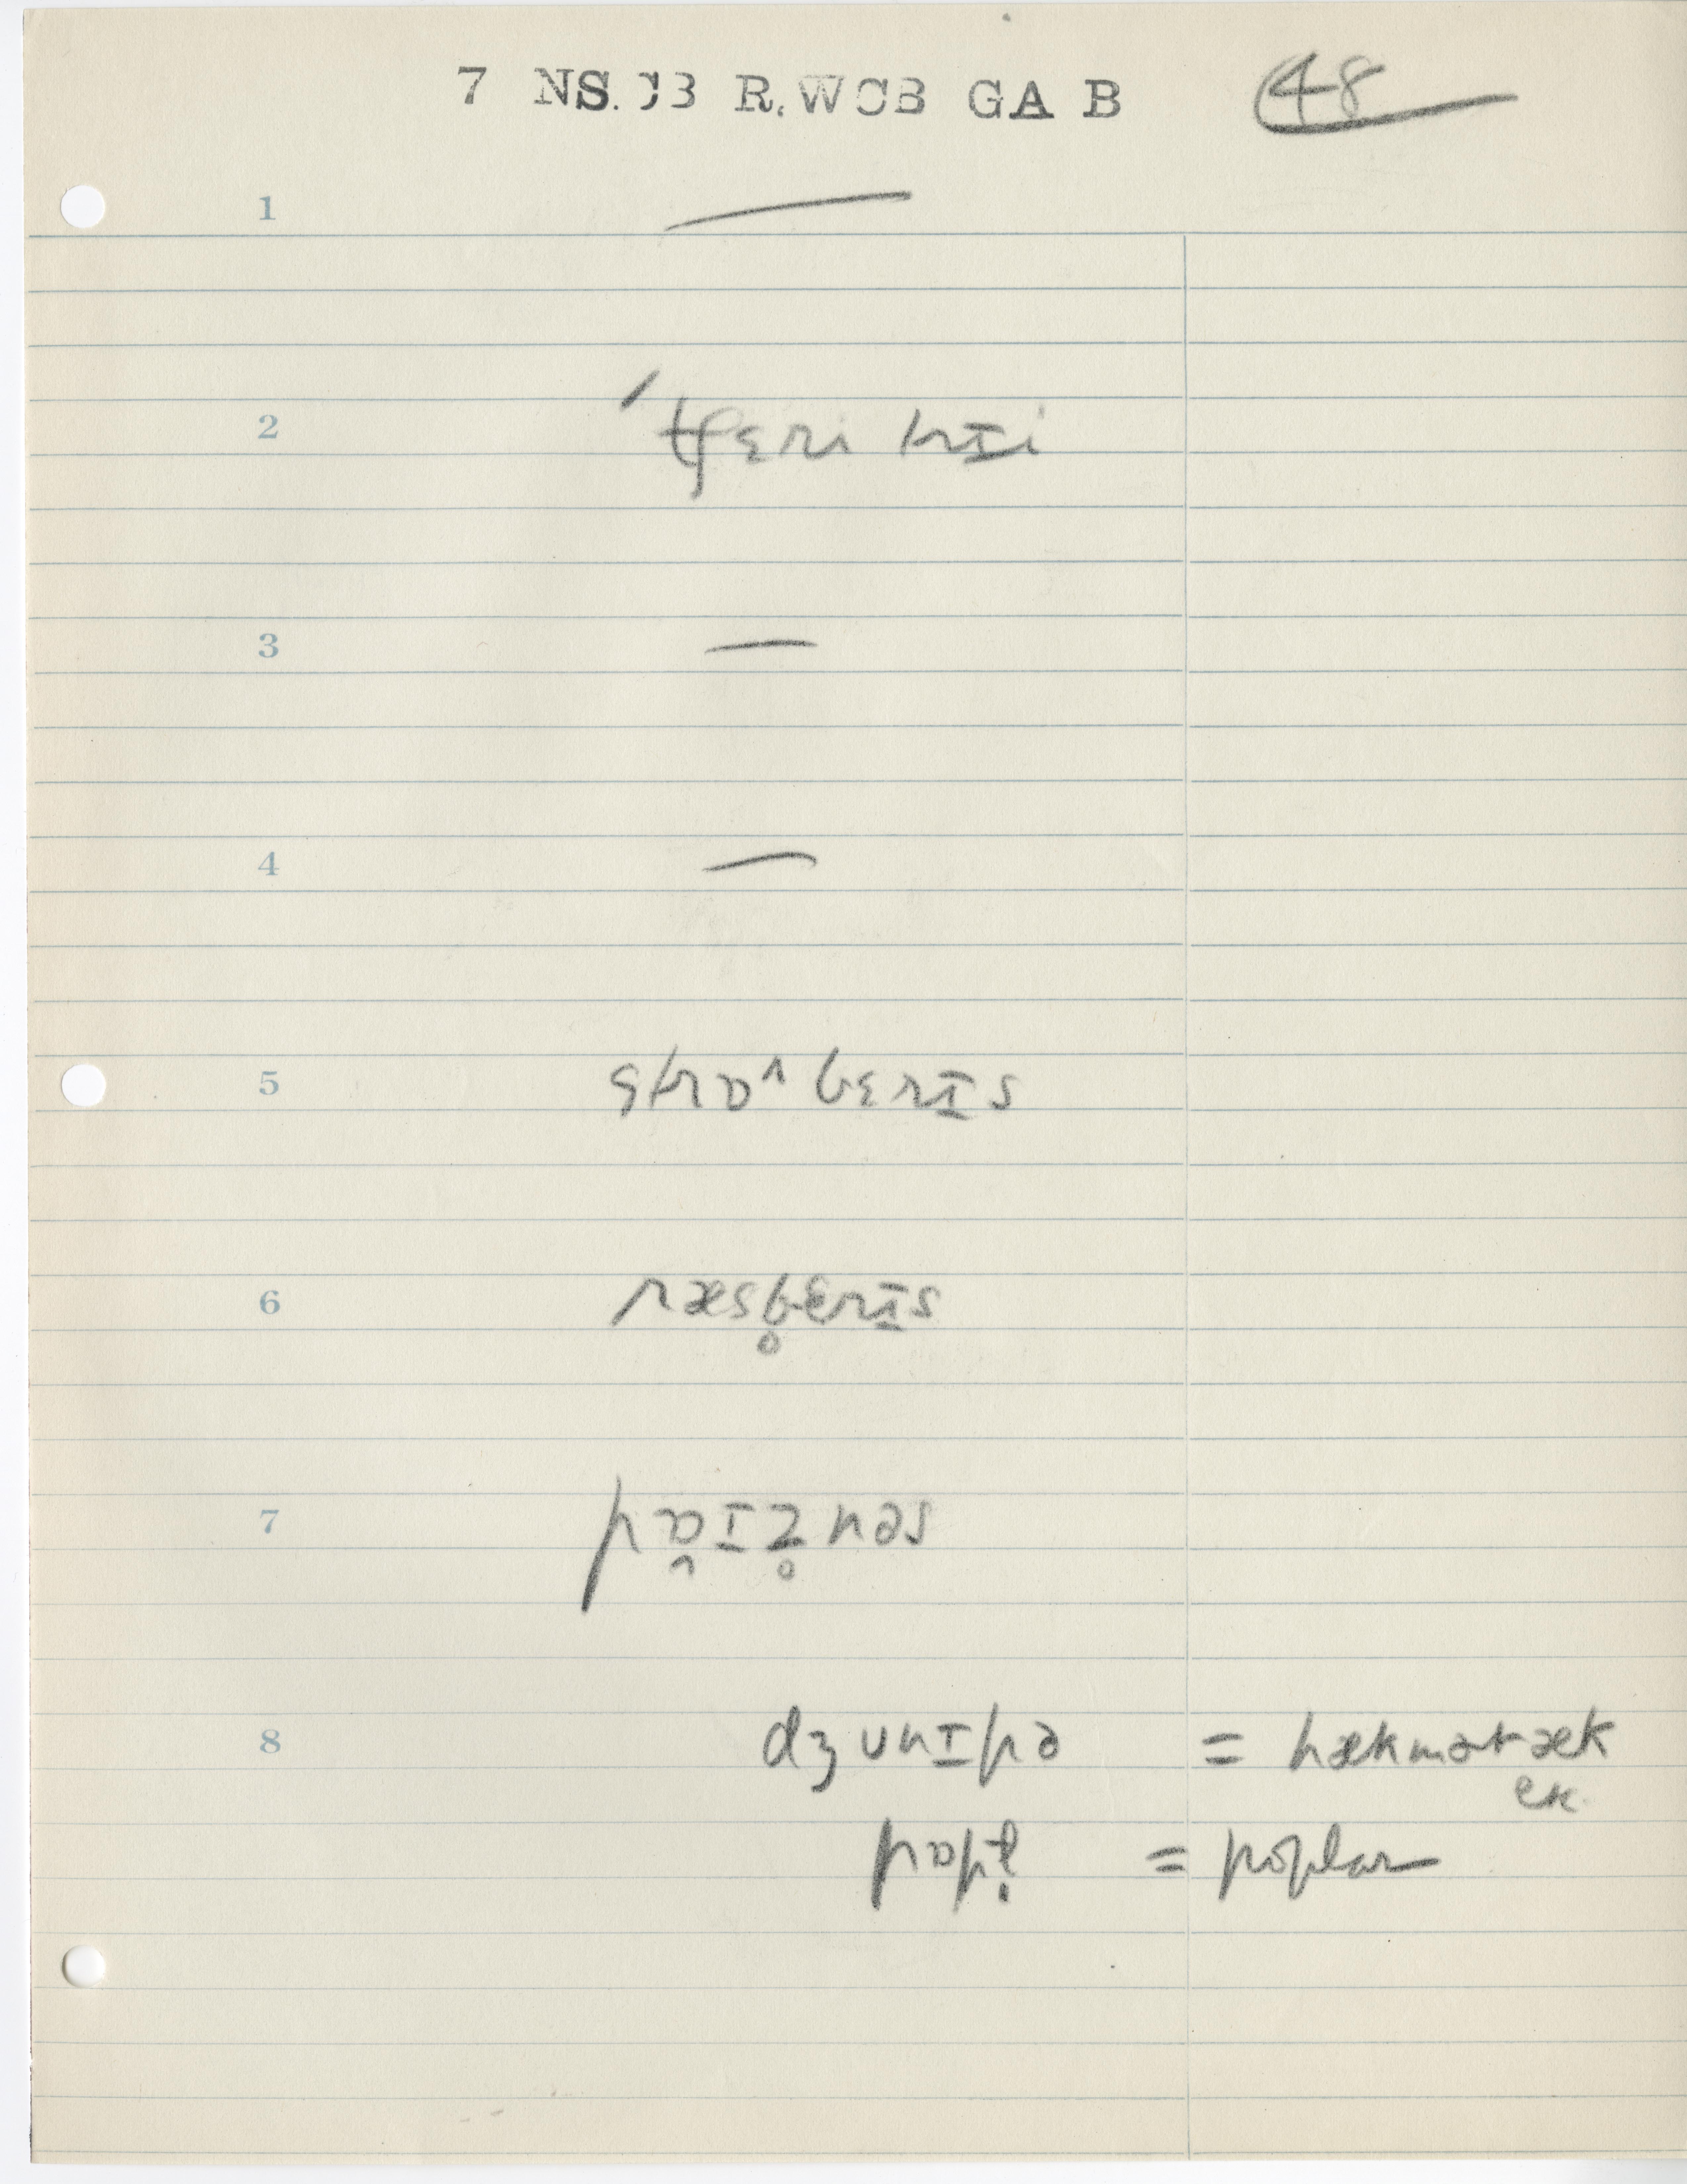 7 NS. CB R. WCB GA B 48
1 —
2 ˈtʃɛri trɪi
3 —
4 —
5 strɒ^ bɛrɪs
6 ræsb̥ɛrɪs
7 pɒ̭ɪz̥nəs
8 dʒunɪpə = hækmətæk
ek
pɒpɫ̣ = poplar